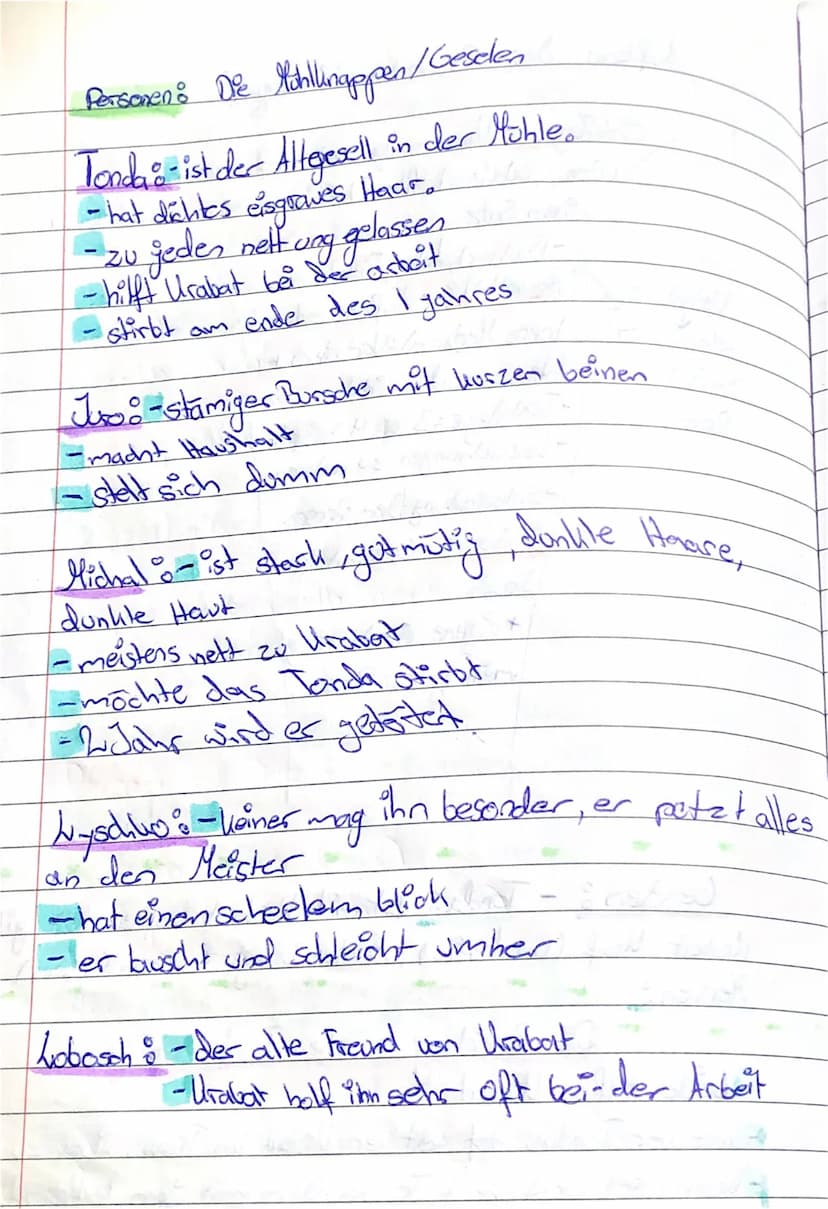 Personen: Die Mühlknappen/Geselen
Tonda: - ist der Altgesell in der Mühle.
- hat dichtes eisgraues Haar.
- zu jeden nett ung gelassen
- hilft Krabat bei der arbeit
- stirbt am ende des 1 jahres
Juro: - stämiger Bursche mit kurzen beinen
- macht Haushalt
- stelt sich dumm
Michal: - ist stark, gutmütig, dunkle Haare,
dunkle Haut
- meistens nett zu Krabat
- möchte das Tonda stirbt
- 2 Jahr wird er getötert
Lyschko: - keiner mag ihn besonder, er petzt alles
an den Meister
- hat einen scheelem blick
- er lauscht und schleicht umher
Lobosch: - der alte Freund von Krabat
- Krabat half ihn sehr oft bei der Arbeit